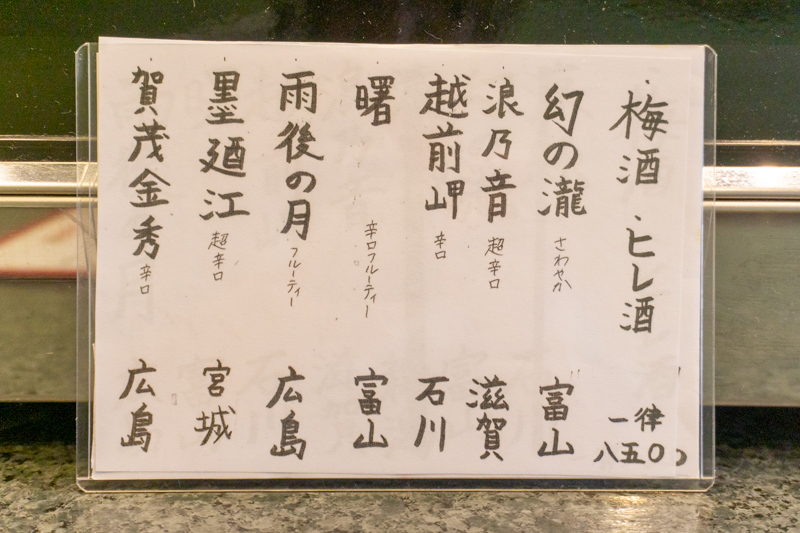 ・梅酒・ヒレ酒 一律
八五〇
・幻の瀧 さわやか 富山
・浪乃音 超辛口 滋賀
・越前岬 辛口 石川
・曙 辛口フルーティー 富山
・雨後の月 フルーティー 広島
・墨廼江 超辛口 宮城
・賀茂金秀 辛口 広島